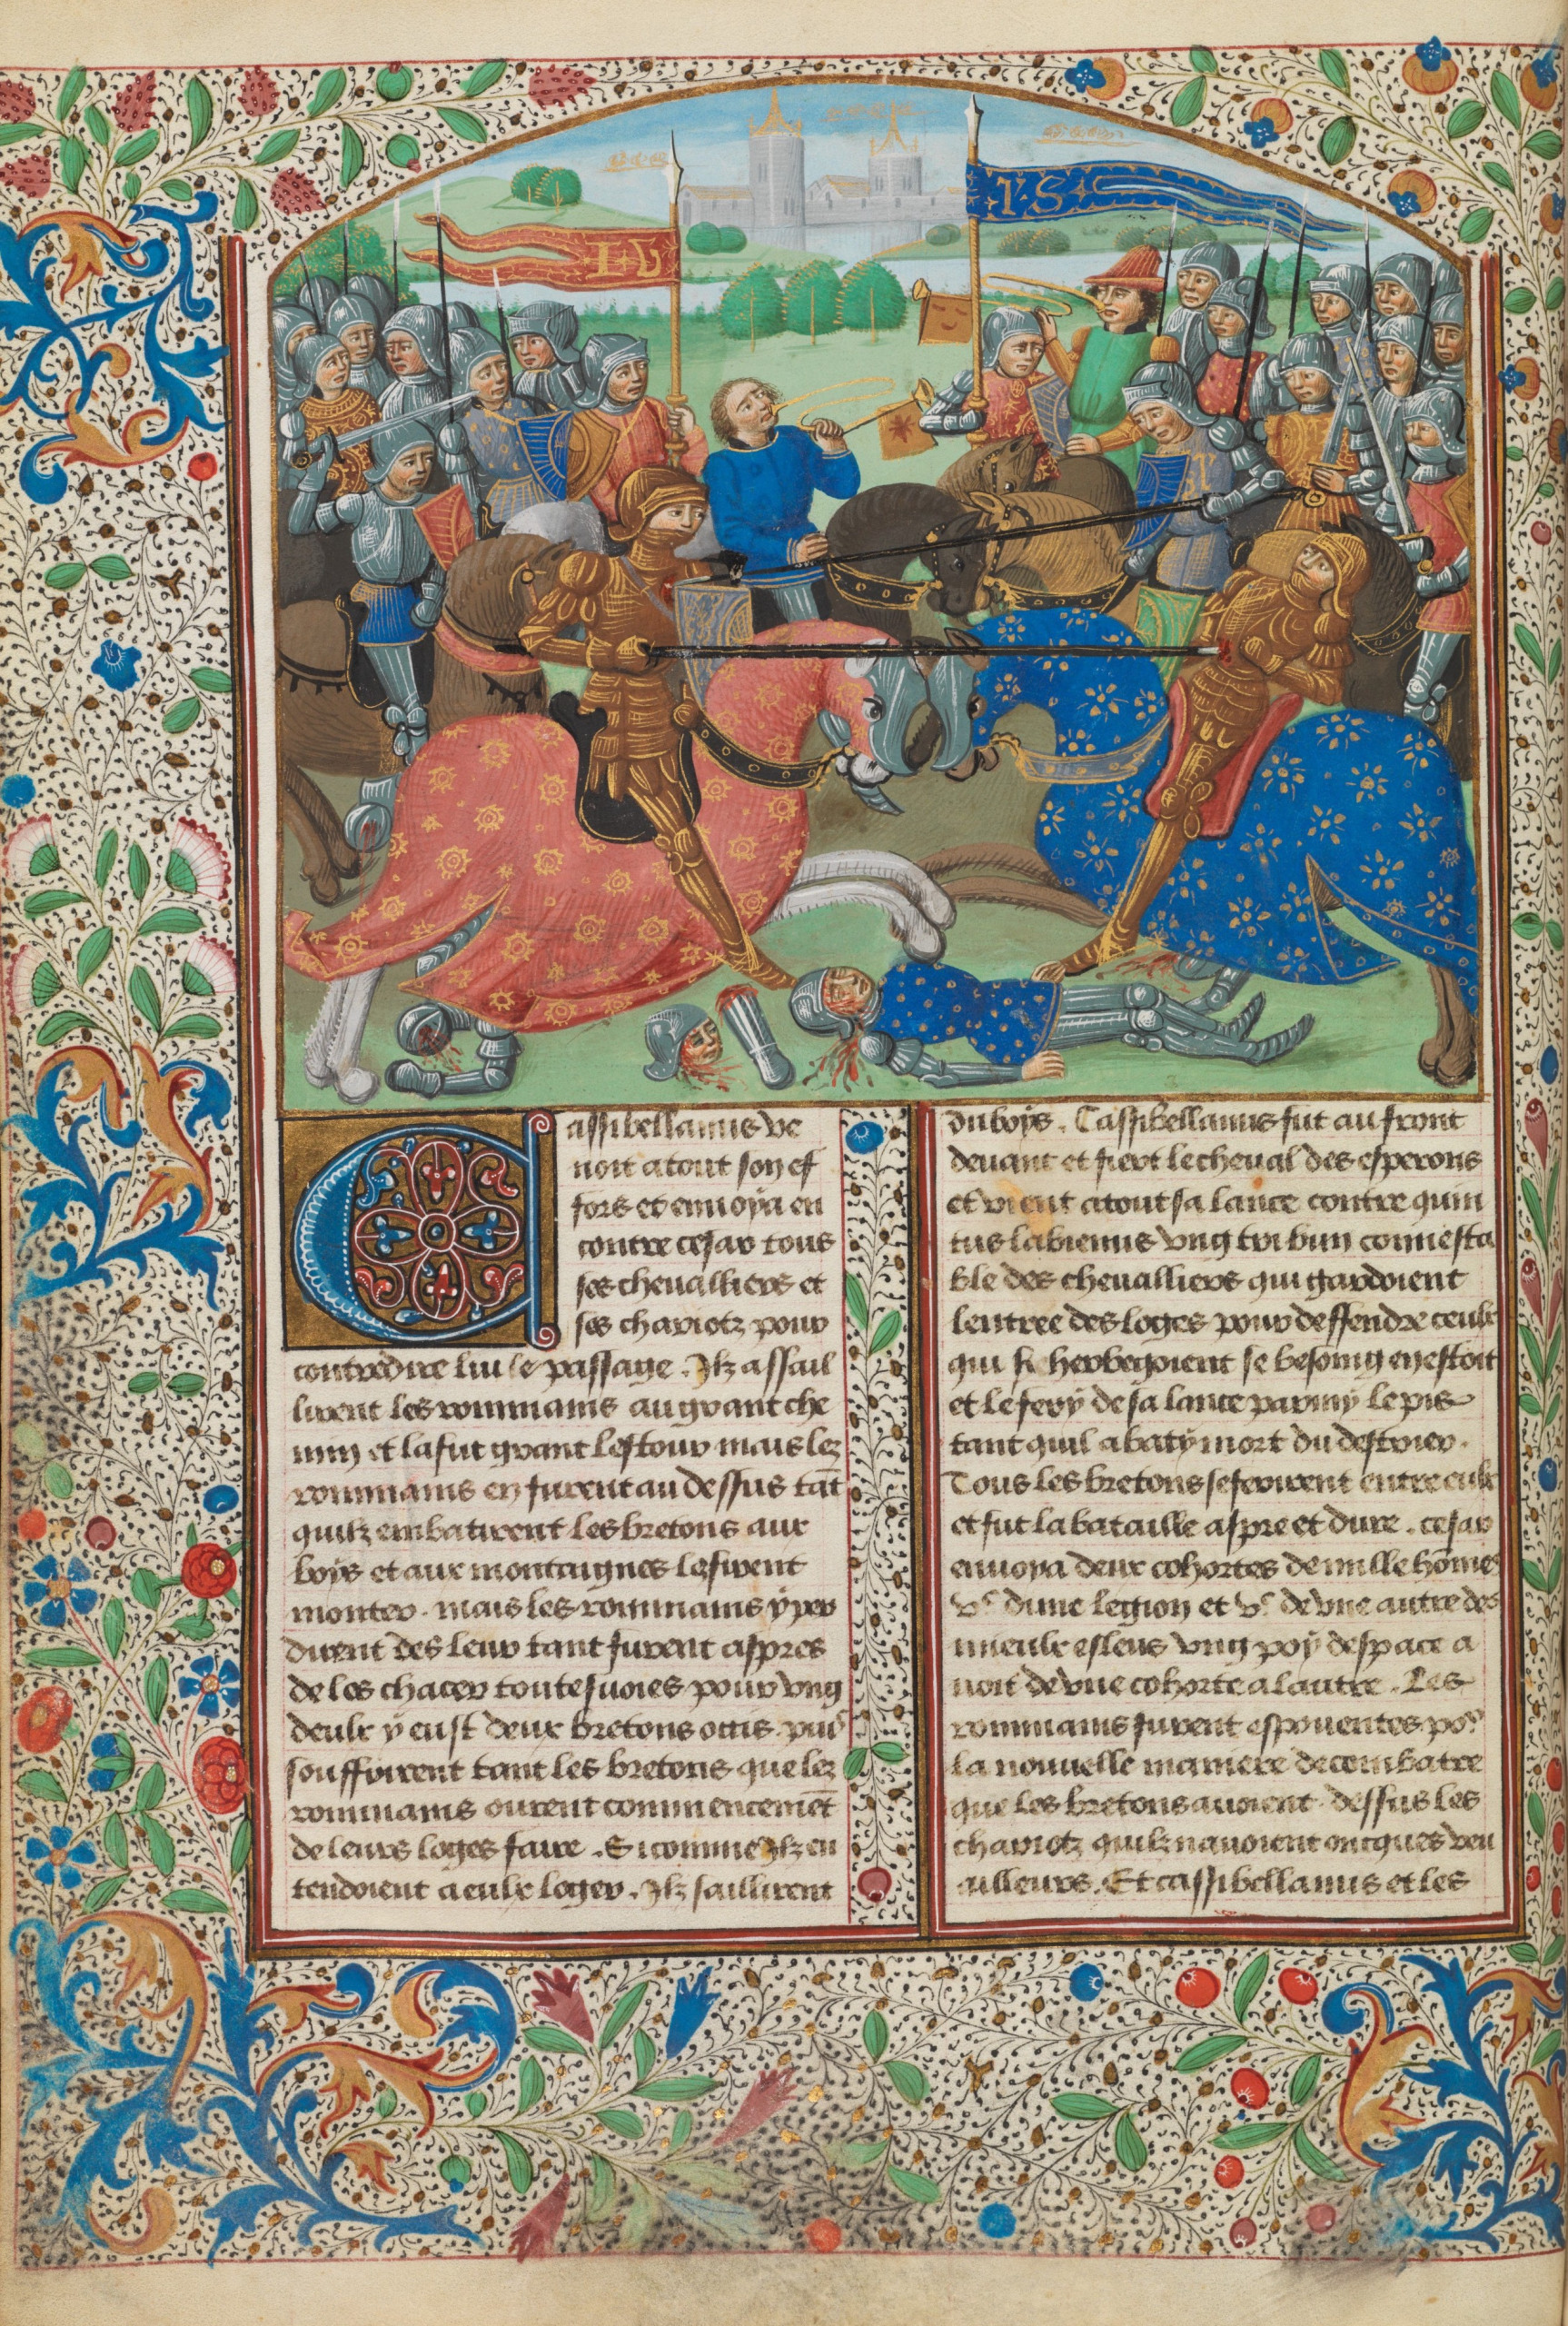 I V
I S
Cassibellanus ve
noit a tout son ef
fors et envoya en
contre cesar tous
ses chevalliers et
ses chariotz pour
contredire lui le passage. Ilz assail
lirent les rommains au grant che
min et la fut grant lestour mais lez
rommains en furent au dessus tāt
quilz embatirent les bretons aux
boys et aux montaignes les firent
monter. mais les rommains y per
dirent des leur tant furent aspres
de les chacer toutesuoies pour vng
deulx y eust deux bretons occis. puis
souffrirent tant les bretons que lez
rommains eurent commencemēt
de leurs loges faire. Si comme Ilz en
tendoient a eulx loger. Ilz saillirent
du boys. Cassibellanus fut au front
deuant et fiert le cheval des esperons
et vient a tout sa lance contre quin
tus labienus vng tribun connesta
ble des chevalliers qui gardoient
lentree des loges pour deffendre ceulx
qui se herbegoient se besoing en estoit
et le fery de sa lance parmy le pis
tant quil abaty mort du destrier.
Tous les bretons se ferirent entre eulx
et fut la bataille aspre et dure. cesar
envoya deux cohortes de mille hōmes
vᶜ dune legion et vᶜ de vne autre des
mieulx esleus vng poy despace a
uoit de vne cohorte a lautre. Les
rommains furent espouentes poʳ
la nouvelle maniere de combatre
que les bretons auoient dessus les
chariotz quilz nauoient oncques veu
ailleurs. Et cassibellanus et les